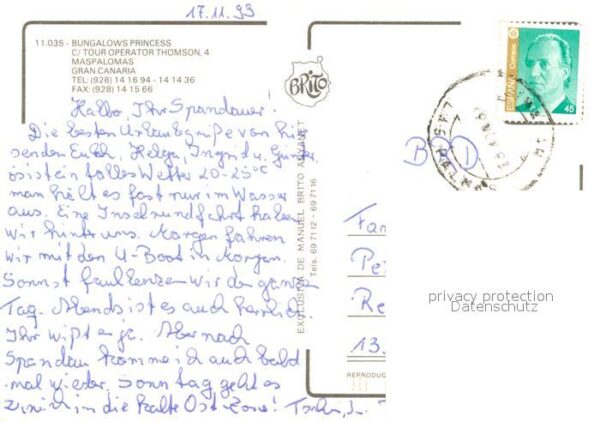 17.11.93
11.035 - BUNGALOWS PRINCESS
C/ TOUR OPERATOR THOMSON, 4
MASPALOMAS
GRAN CANARIA
TEL: (928) 14 16 94 - 14 14 36
FAX: (928) 14 15 66
Hallo, Ihr Spandauer!
Die besten Urlaubsgrüße von hier
senden Euch, Helga, Ingrid u. Günter,
es ist ein tolles Wetter 20-25°C
man hielt es fast nur im Wasser
aus. Eine Inselrundfahrt haben
wir hinter uns. Morgen fahren
wir mit dem U-Boot in
Sonst faulenzen wir den ganzen
Tag. Abends ist es auch herrlich.
Ihr wißt es ja. Aber nach
Spandau komme ich auch bald
mal wieder, sonntag geht es
zurück in die kalte Ost-Zone! Tschü
BRITO
EXCLUSIVA DE MANUEL BRITO
Tels. 69 7112 - 69 7116
REPRODUC
ESPAÑA
Correos
45
LAS PALMAS
BRD
Fam
Pe
Re
13.
privacy protection
Datenschutz